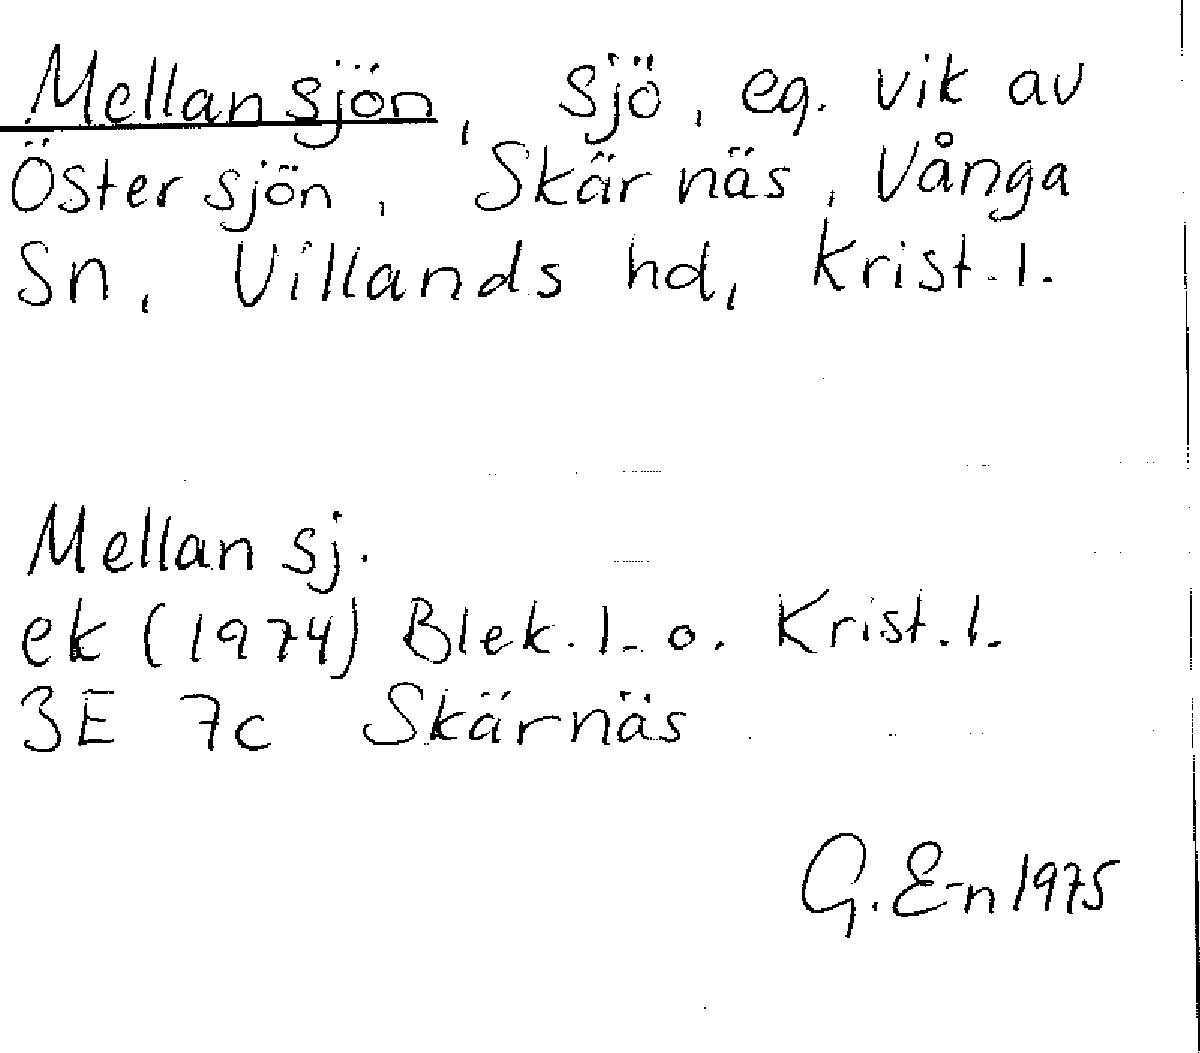 Mellansjön, sjö, eg. vik av
Östersjön, Skärnäs, Vånga
Sn, Villands hd, Krist. l.
Mellansj.
ek (1974) Blek. l. o. Krist. l.
3E 7c Skärnäs
G. E-n 1975